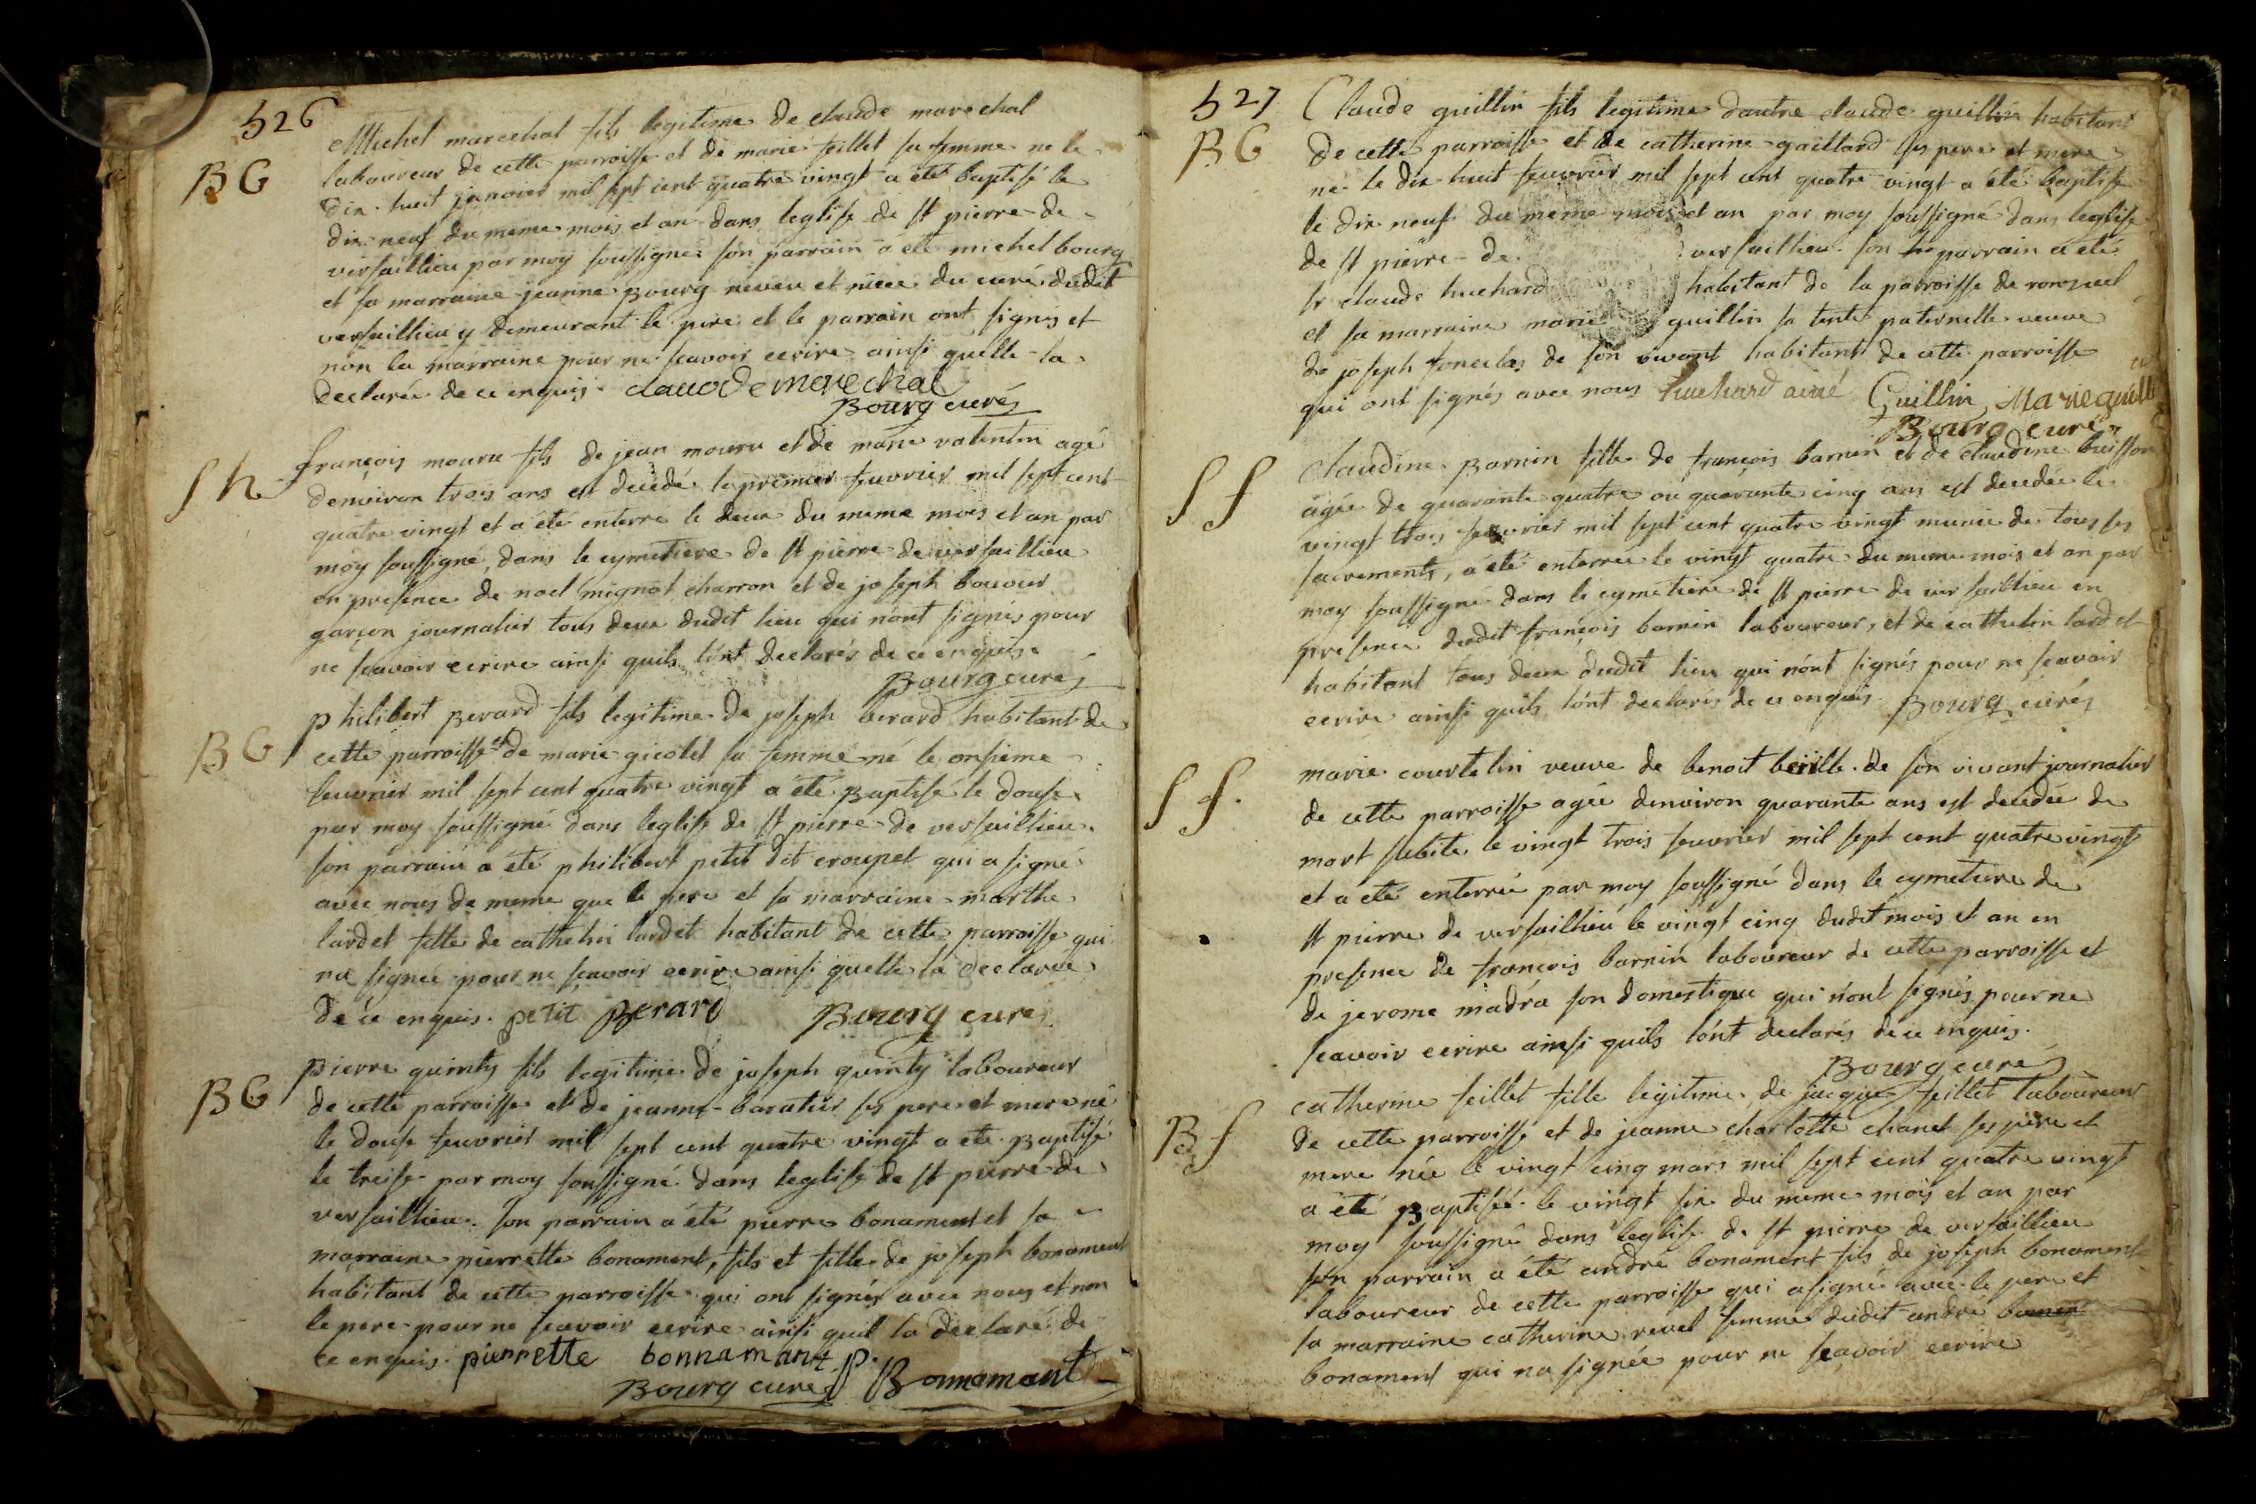 526
Michel marechal fils legitime de claude marechal
BG
laboureur de cette parroisse et de marie feillet sa femme ne le
dix-huit janvier mil sept cent quatre vingt a eté baptisé le
dix neuf du meme mois et an dans leglise de st pierre de
versaillieu par moy soussigné son parrain a eté michel bourg
et sa marraine jeanne Bourg neveu et niece du curé dudit
versaillieu y demeurant le pere et le parrain ont signés et
non la marraine pour ne scavoir ecrire ainsi quelle la
declarée de ce enquis. claude marechal
Bourg curé
françois mouru fils de jean mouru et de marie valentin agé
Sh
denviron trois ans est decédé le premier feuvrier mil sept cent
quatre vingt et a été enterré le deux du meme mois et an par
moy soussigné, dans le cymetiere de st pierre de versaillieu
en presence de noel mignot charron et de joseph bouour
garçon journalier tous deux dudit lieu qui n'ont signés pour
ne scavoir ecrire ainsi quils l'ont declarés de ce enquis.
Bourg curé
philibert Berard fils legitime de joseph berard habitant de
BG
cette parroisse et de marie gicolet sa femme né le onsieme
feuvrier mil sept cent quatre vingt a été Baptisé le douse
par moy soussigné dans leglise de st pierre de versaillieu.
son parrain a été philibert petit dit croupet qui a signé
avec nous de meme que le pere et sa marraine marthe
lardet fille de cathelin lardet habitant de cette parroisse qui
na signée pour ne scavoir ecrire ainsi quelle la declarée
de ce enquis. petit Berard Bourg curé
pierre quinty fils legitime de joseph quinty laboureur
BG
de cette parroisse et de jeanne baratier ses pere et mere né
le douse feuvrier mil sept cent quatre vingt a eté Baptisé
le treise par moy soussigné dans leglise de st pierre de
versaillieu. son parrain a été pierre bonament et sa
marraine pierrette bonament, fils et fille de joseph bonament
habitant de cette parroisse qui ont signés avec nous et non
le pere pour ne scavoir ecrire ainsi quil la declaré de
ce enquis. pierrette bonnamant p. Bonnamant
Bourg curé
527
Claude guillin fils legitime dautre claude guillin habitant
BG
de cette parroisse et de catherine gaillard ses pere et mere
né le dix huit feuvrier mil sept cent quatre vingt a été baptisé
le dix neuf du meme mois et an par moy soussigné dans leglise
de st pierre de versaillieu. son parrain a eté
sr claude huchard habitant de la parroisse de
et sa marraine marie guillin sa tante paternelle veuve
de joseph de son vivant habitant de cette parroisse
qui ont signés avec nous huchard ainé Guillin, Marie guillin
Bourg curé
Claudine Barnin fille de françois barnin et de claudine buisson
Sf
agée de quarante quatre ou quarante cinq ans est decedée le
vingt trois feuvrier mil sept cent quatre vingt munie de tous ses
sacrements, a été enterrée le vingt quatre du meme mois et an par
moy soussigné dans le cymetiere de st pierre de versaillieu en
presence dudit françois barnin laboureur, et de cathelin lardet
habitant tous deux dudit lieu qui n'ont signés pour ne scavoir
ecrire ainsi quils l'ont declarés de ce enquis. Bourg curé
marie courtelin veuve de benoit beiille de son vivant journalier
Sf.
de cette parroisse agée denviron quarante ans est decedée de
mort subite le vingt trois feuvrier mil sept cent quatre vingt
et a eté enterrée par moy soussigné dans le cymetiere de
st pierre de versaillieu le vingt cinq dudit mois et an en
presence de françois barnin laboureur de cette parroisse et
de jerome madra son domestique qui n'ont signés pour ne
scavoir ecrire ainsi quils l'ont declarés de ce enquis.
Bourg curé
catherine feillet fille legitime de jacque feillet laboureur
Bf
de cette parroisse et de jeanne charlotte chanel ses pere et
mere née le vingt cinq mars mil sept cent quatre vingt
a été Baptisée le vingt six du meme mois et an par
moy soussigné dans leglise de st pierre de versaillieu
son parrain a été andré bonament fils de joseph bonament
laboureur de cette parroisse qui a signé avec le pere et
sa marraine catherine revel femme dudit andré
bonament qui na signée pour ne scavoir ecrire